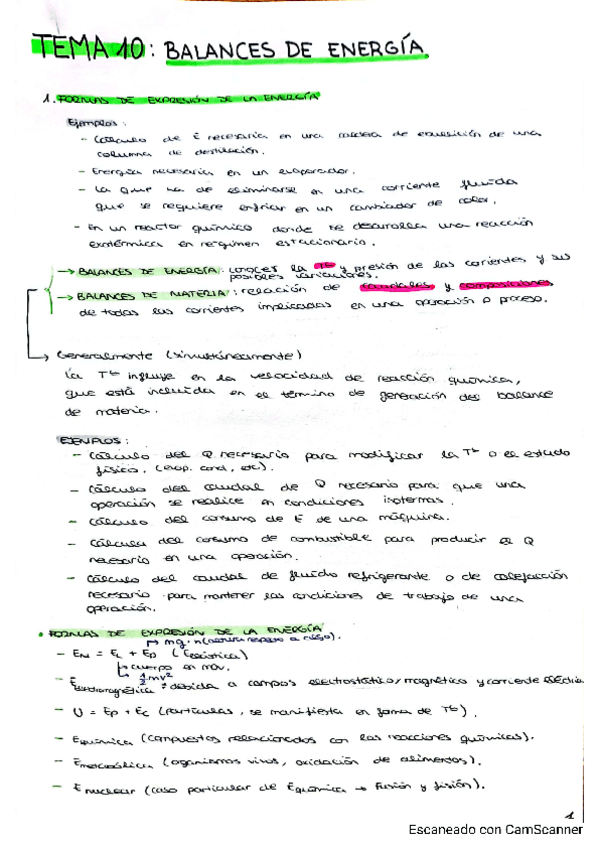 TEMA 10: BALANCES DE ENERGÍA.
1. FORMAS DE EXPRESIÓN DE LA ENERGÍA
Ejemplos:
- Cálculo de E necesaria en una caldera de ebullición de una
columna de destilación.
- Energía necesaria en un evaporador.
- La que ha de eliminarse en una corriente fluida
que se requiere enfriar en un cambiador de calor.
- En un reactor químico donde se desarrolla una reacción
exotérmica en régimen estacionario.
→ BALANCES DE ENERGÍA: conocer la Tª y presión de las corrientes y sus
posibles variaciones.
→ BALANCES DE MATERIA: relación de caudales y composiciones
de todas las corrientes implicadas en una operación o proceso.
→ Generalmente (simultáneamente)
La Tª influye en la velocidad de reacción química,
que está incluida en el término de generación del balance
de materia.
EJEMPLOS:
- Cálculo del Q necesario para modificar la Tª o el estado
físico. (evap. cond, etc).
- Cálculo del caudal de Q necesario para que una
operación se realice en condiciones isotermas.
- Cálculo del consumo de E de una máquina.
- Cálculo del consumo de combustible para producir el Q
necesario en una operación.
- Cálculo del caudal de fluido refrigerante o de calefacción
necesario para mantener las condiciones de trabajo de una
operación.
• FORMAS DE EXPRESIÓN DE LA ENERGÍA
→ mg·h (altura respecto a algo).
- EM = Ec + Ep (elástica)
→ cuerpo en mov.
→ 1/2 mv²
- Eelectromagnética: debida a campos electrostático/magnético y corriente eléctrica
- U = Ep + Ec (partículas, se manifiesta en forma de Tª).
- Equímica (compuestos relacionados con las reacciones químicas).
- Emetabólica (organismos vivos, oxidación de alimentos).
- Enuclear (caso particular de Equímica → Fusión y fisión).
1
Escaneado con CamScanner